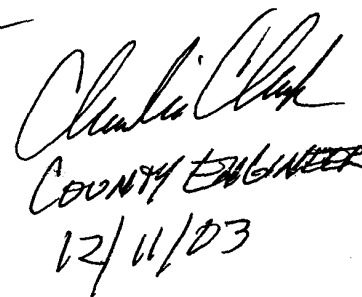 Charlie Clark
COUNTY ENGINEER
12/11/03